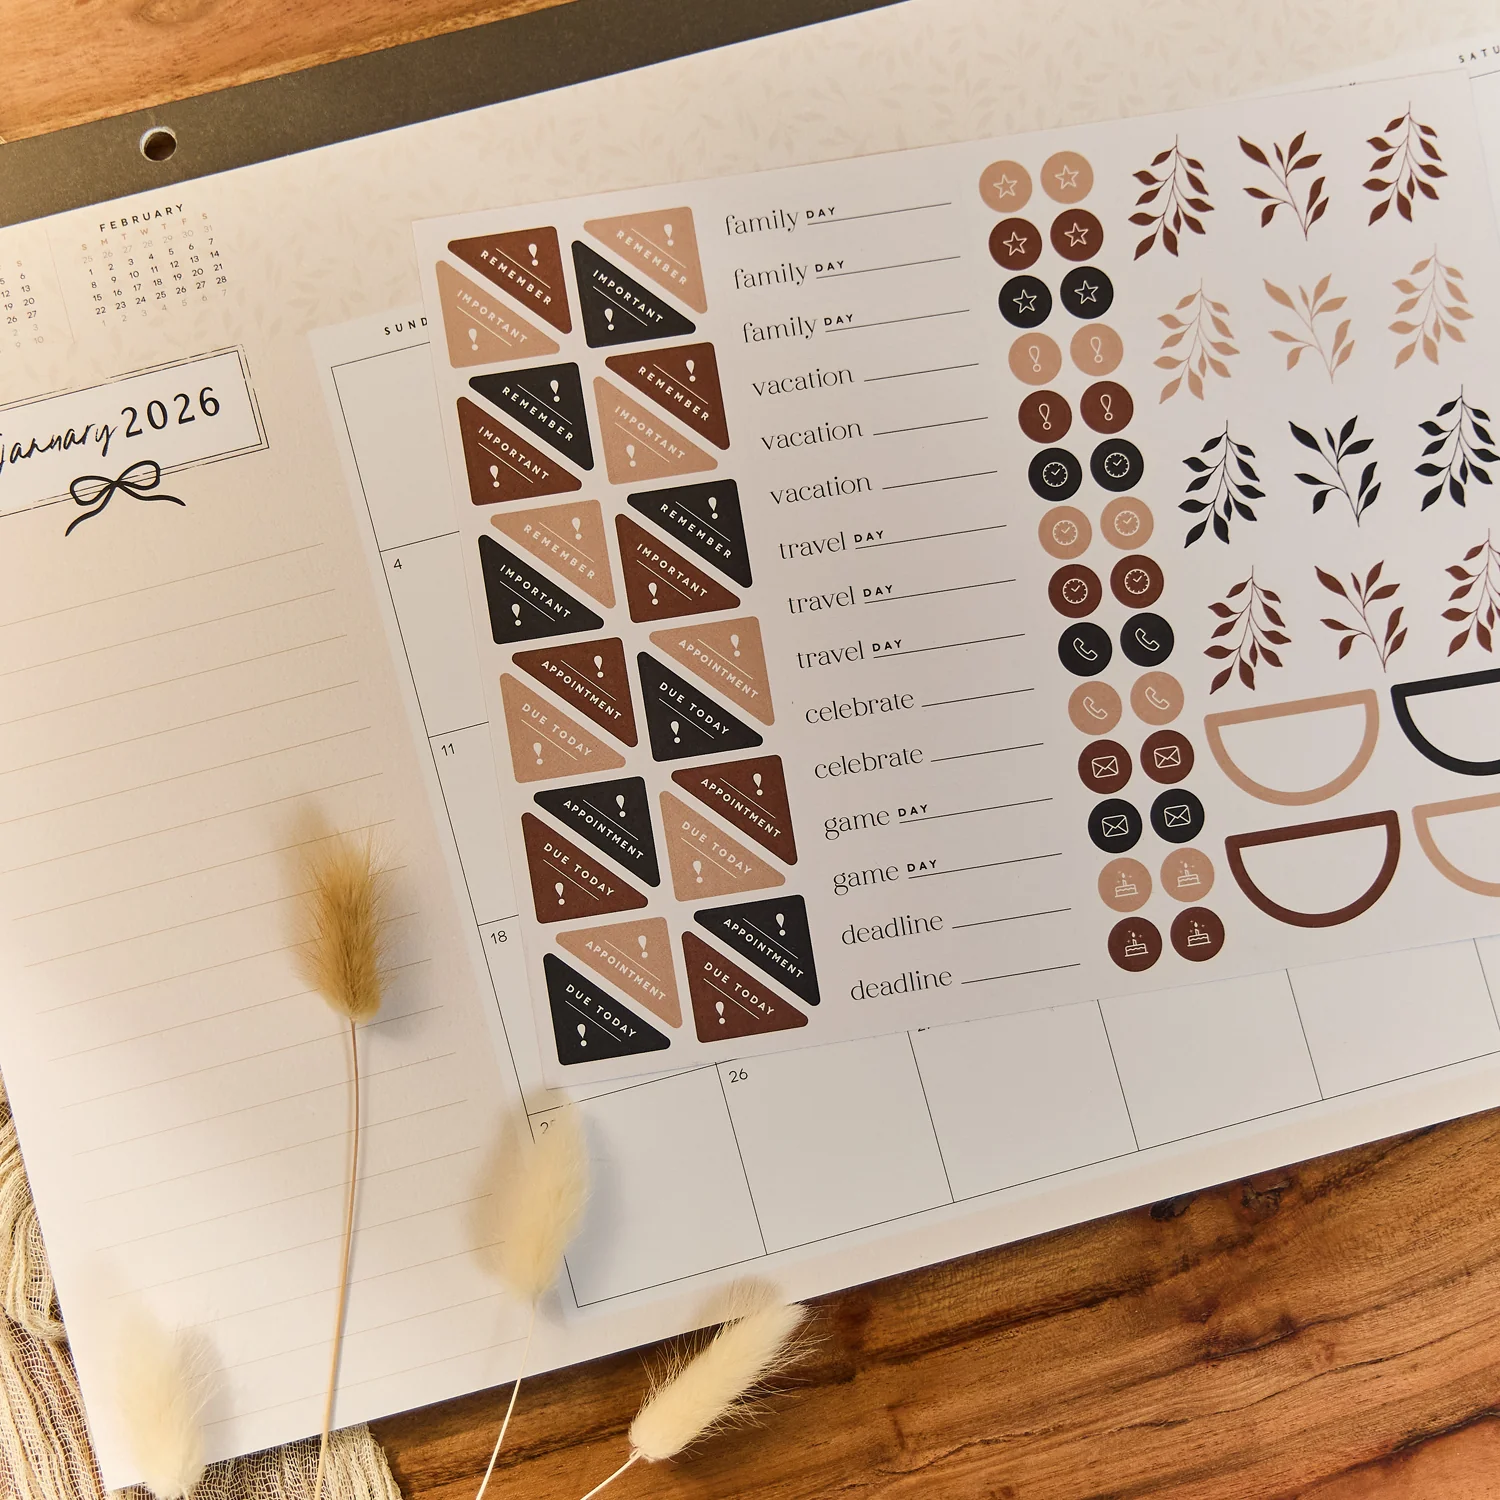 SATU
FEBRUARY
S M T W T F S
25 26 27 28 29 30 31
1 2 3 4 5 6 7
8 9 10 11 12 13 14
15 16 17 18 19 20 21
22 23 24 25 26 27 28
1 2 3 4 5 6 7
S
5 6
12 13
19 20
26 27
2 3
9 10
january 2026
SUND
4
11
18
25
26
REMEMBER
REMEMBER
IMPORTANT
IMPORTANT
REMEMBER
REMEMBER
IMPORTANT
IMPORTANT
REMEMBER
REMEMBER
IMPORTANT
IMPORTANT
APPOINTMENT
APPOINTMENT
DUE TODAY
DUE TODAY
APPOINTMENT
APPOINTMENT
DUE TODAY
DUE TODAY
APPOINTMENT
APPOINTMENT
DUE TODAY
DUE TODAY
family DAY
family DAY
family DAY
vacation
vacation
vacation
travel DAY
travel DAY
travel DAY
celebrate
celebrate
game DAY
game DAY
deadline
deadline